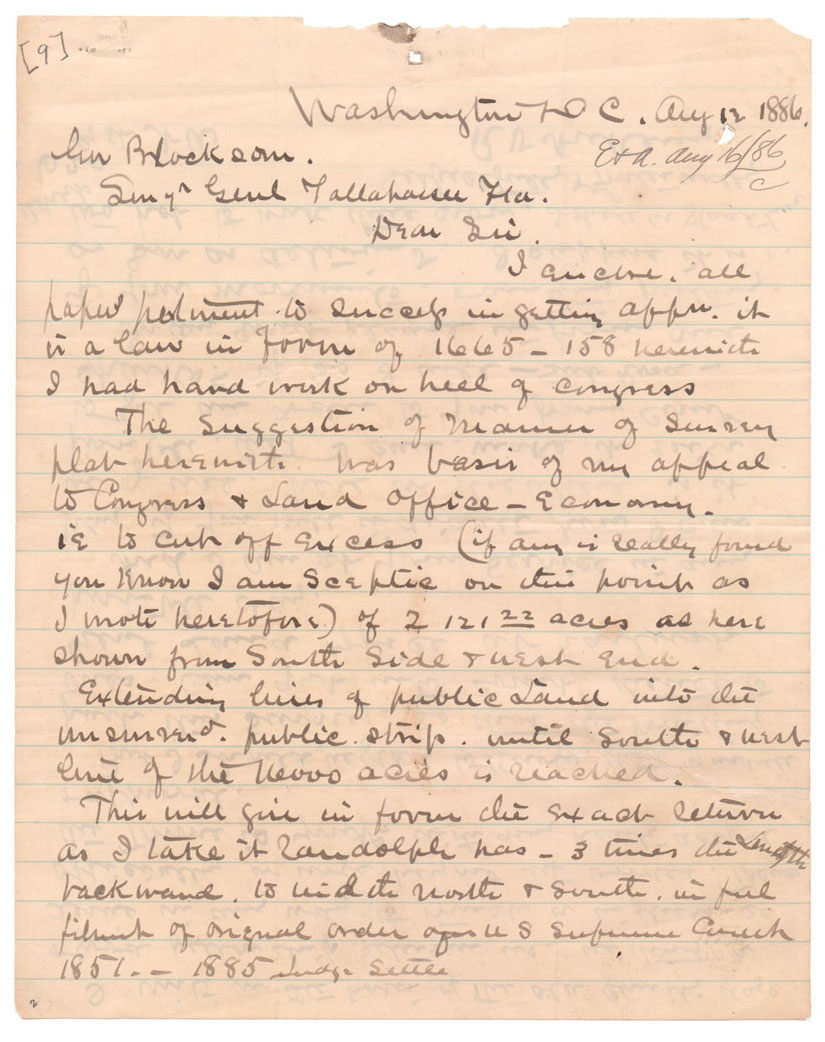 [9]
Washington D C. Aug 12 1886.
Exa. Aug 16/86
C
Gov Blocksom.
Survyr Genl Tallahassee Fla.
Dear Sir.
I enclose. all
papers pertinent to success in getting appn. it
is a law in form of 1665 - 158 herewith
I had hard work on heel of congress
The suggestion of manner of survey
plat herewith. was basis of my appeal
to Congress & Land Office - Economy.
ie to cut off excess (if any is really found
you know I am sceptic on this point as
I wrote heretofore) of 2 121 22 acres as here
shown from South Side & west End.
Extending lines of public Land into the
unsurveyd. public. strip. until South & west
line of the acres is reached.
This will give in form the exact return
as I take it Randolph has - 3 times the Length
backward. to width North & South. in ful
filment of orignal order of U S Supreme Court
1851. - 1885 Judge Settle
2